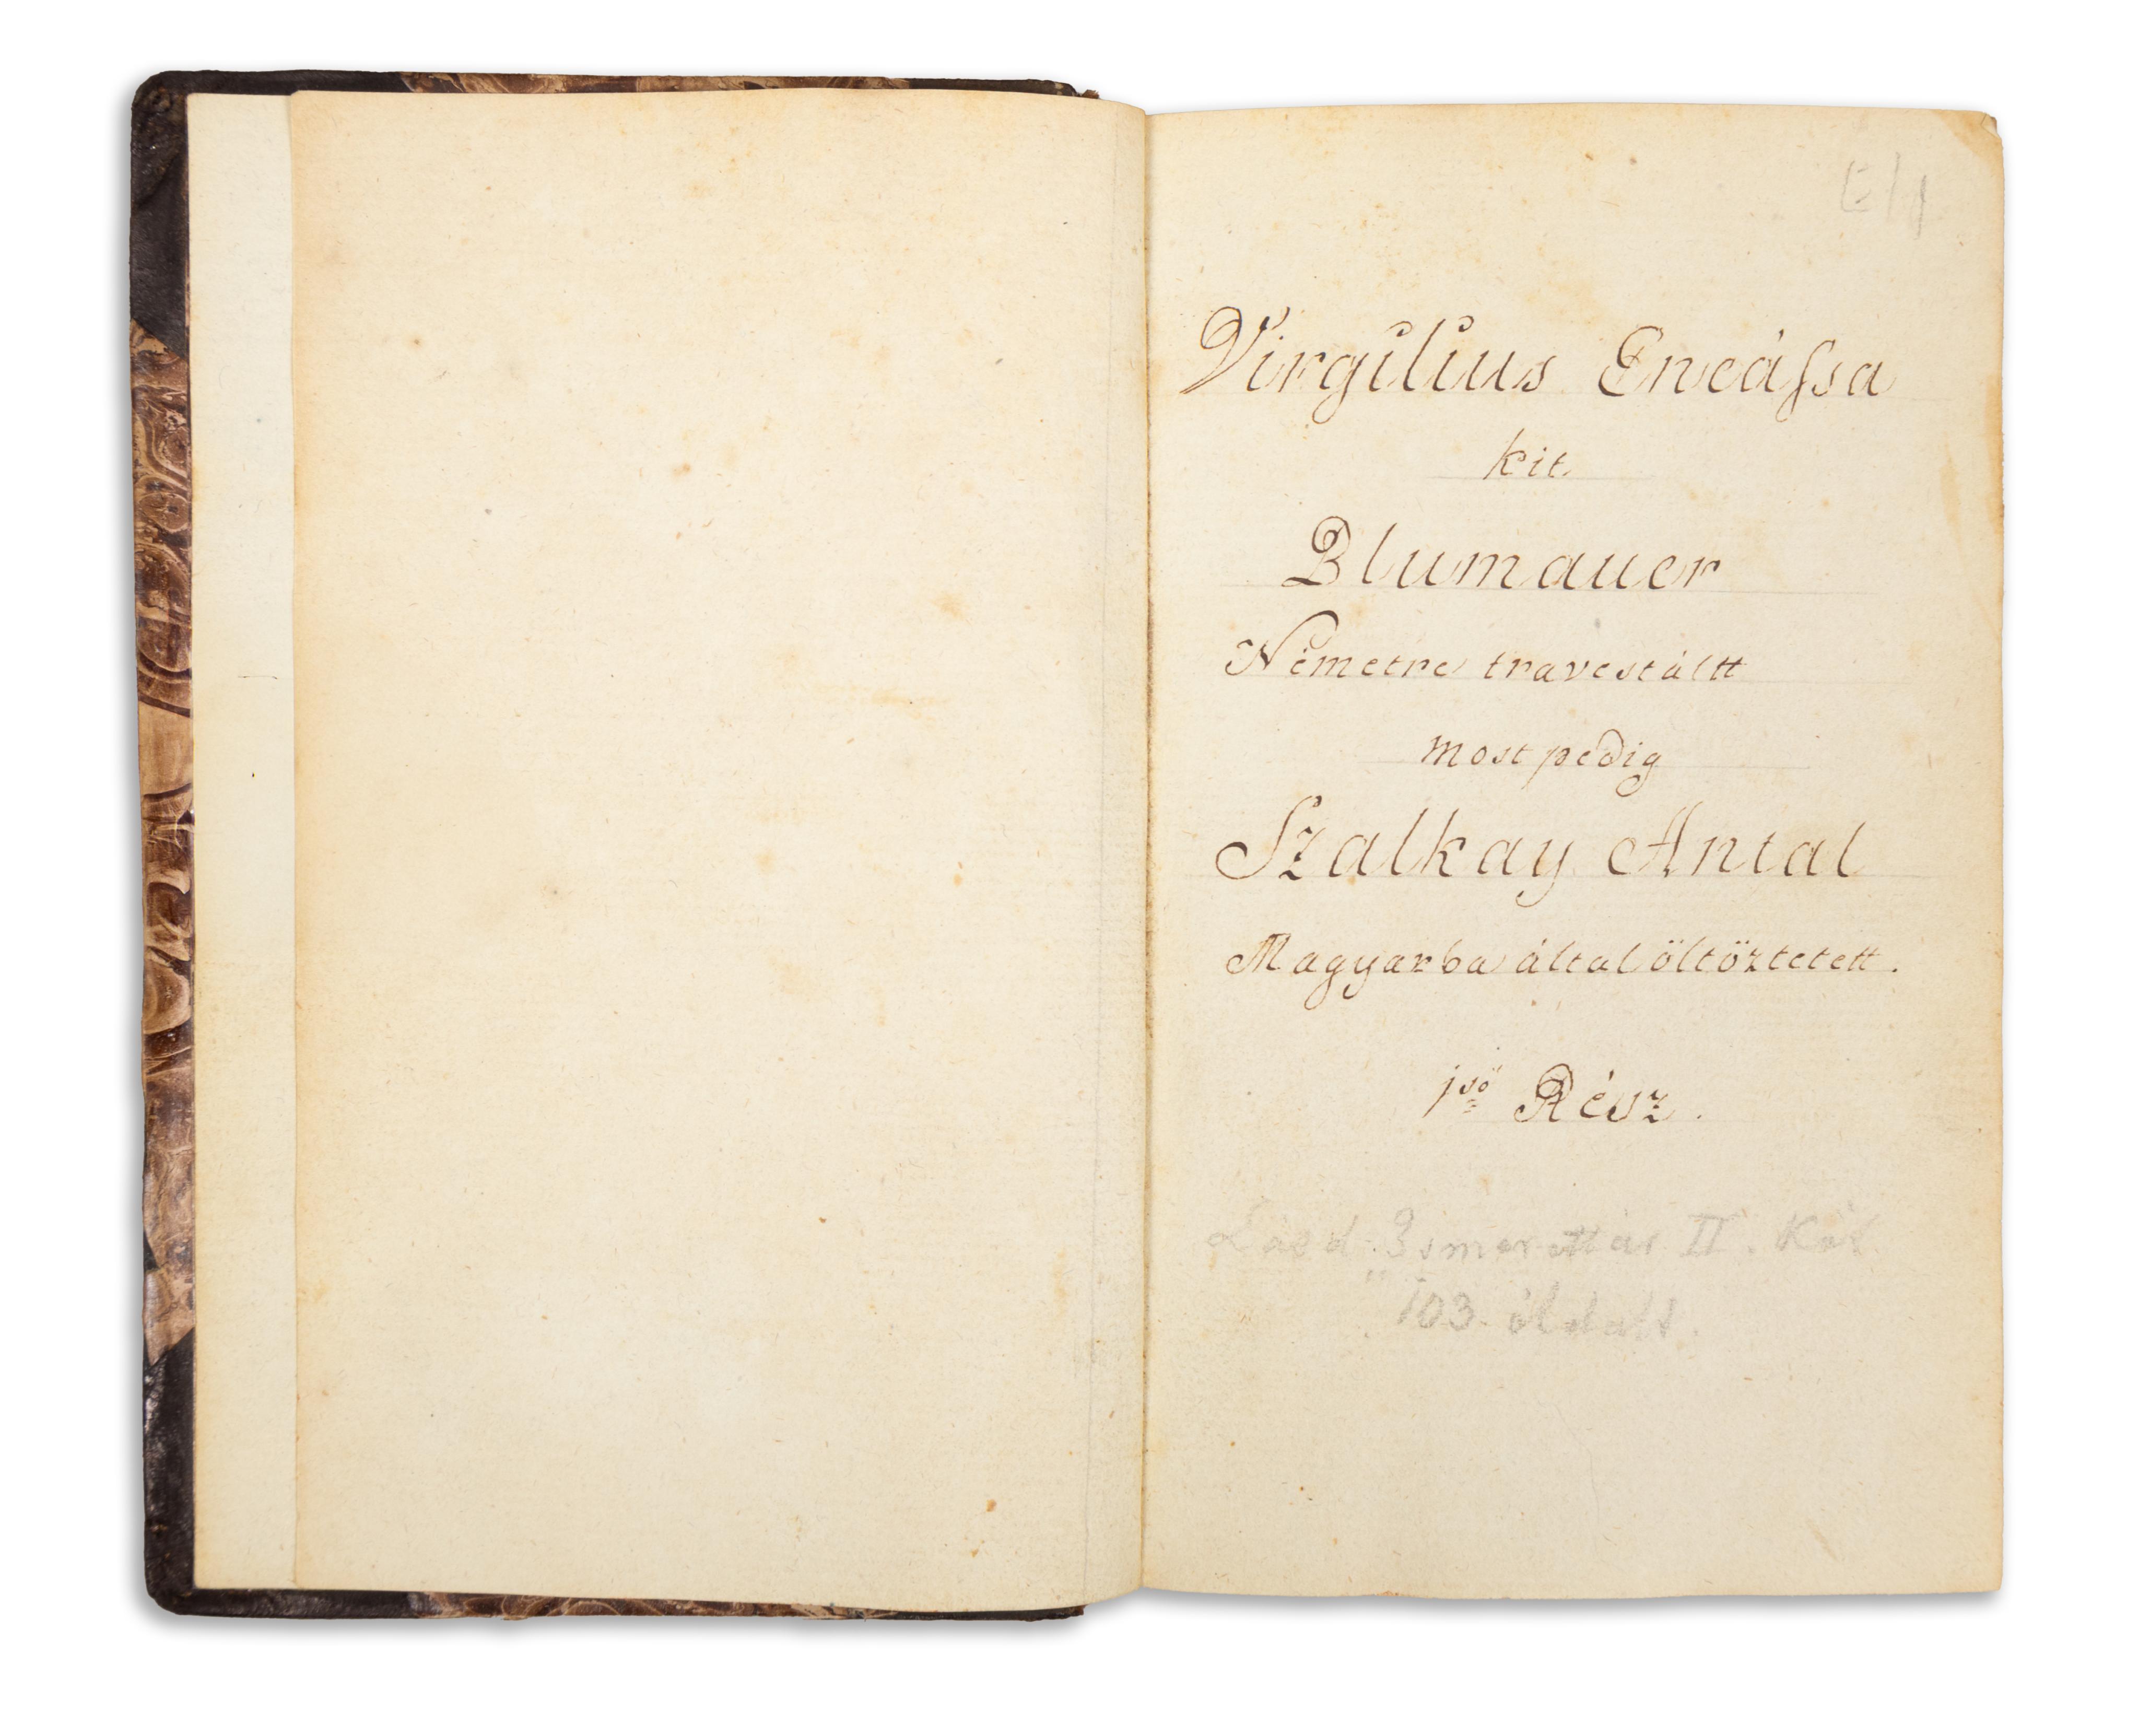 E/1
Virgilius Eneáſsa
kit
Blumauer
Németre travestáltt
most pedig
Szalkay Antal
Magyarba által öltöztetett.
1ső Rész.
Lásd Ismerettár II. Köt
103. óldalt.